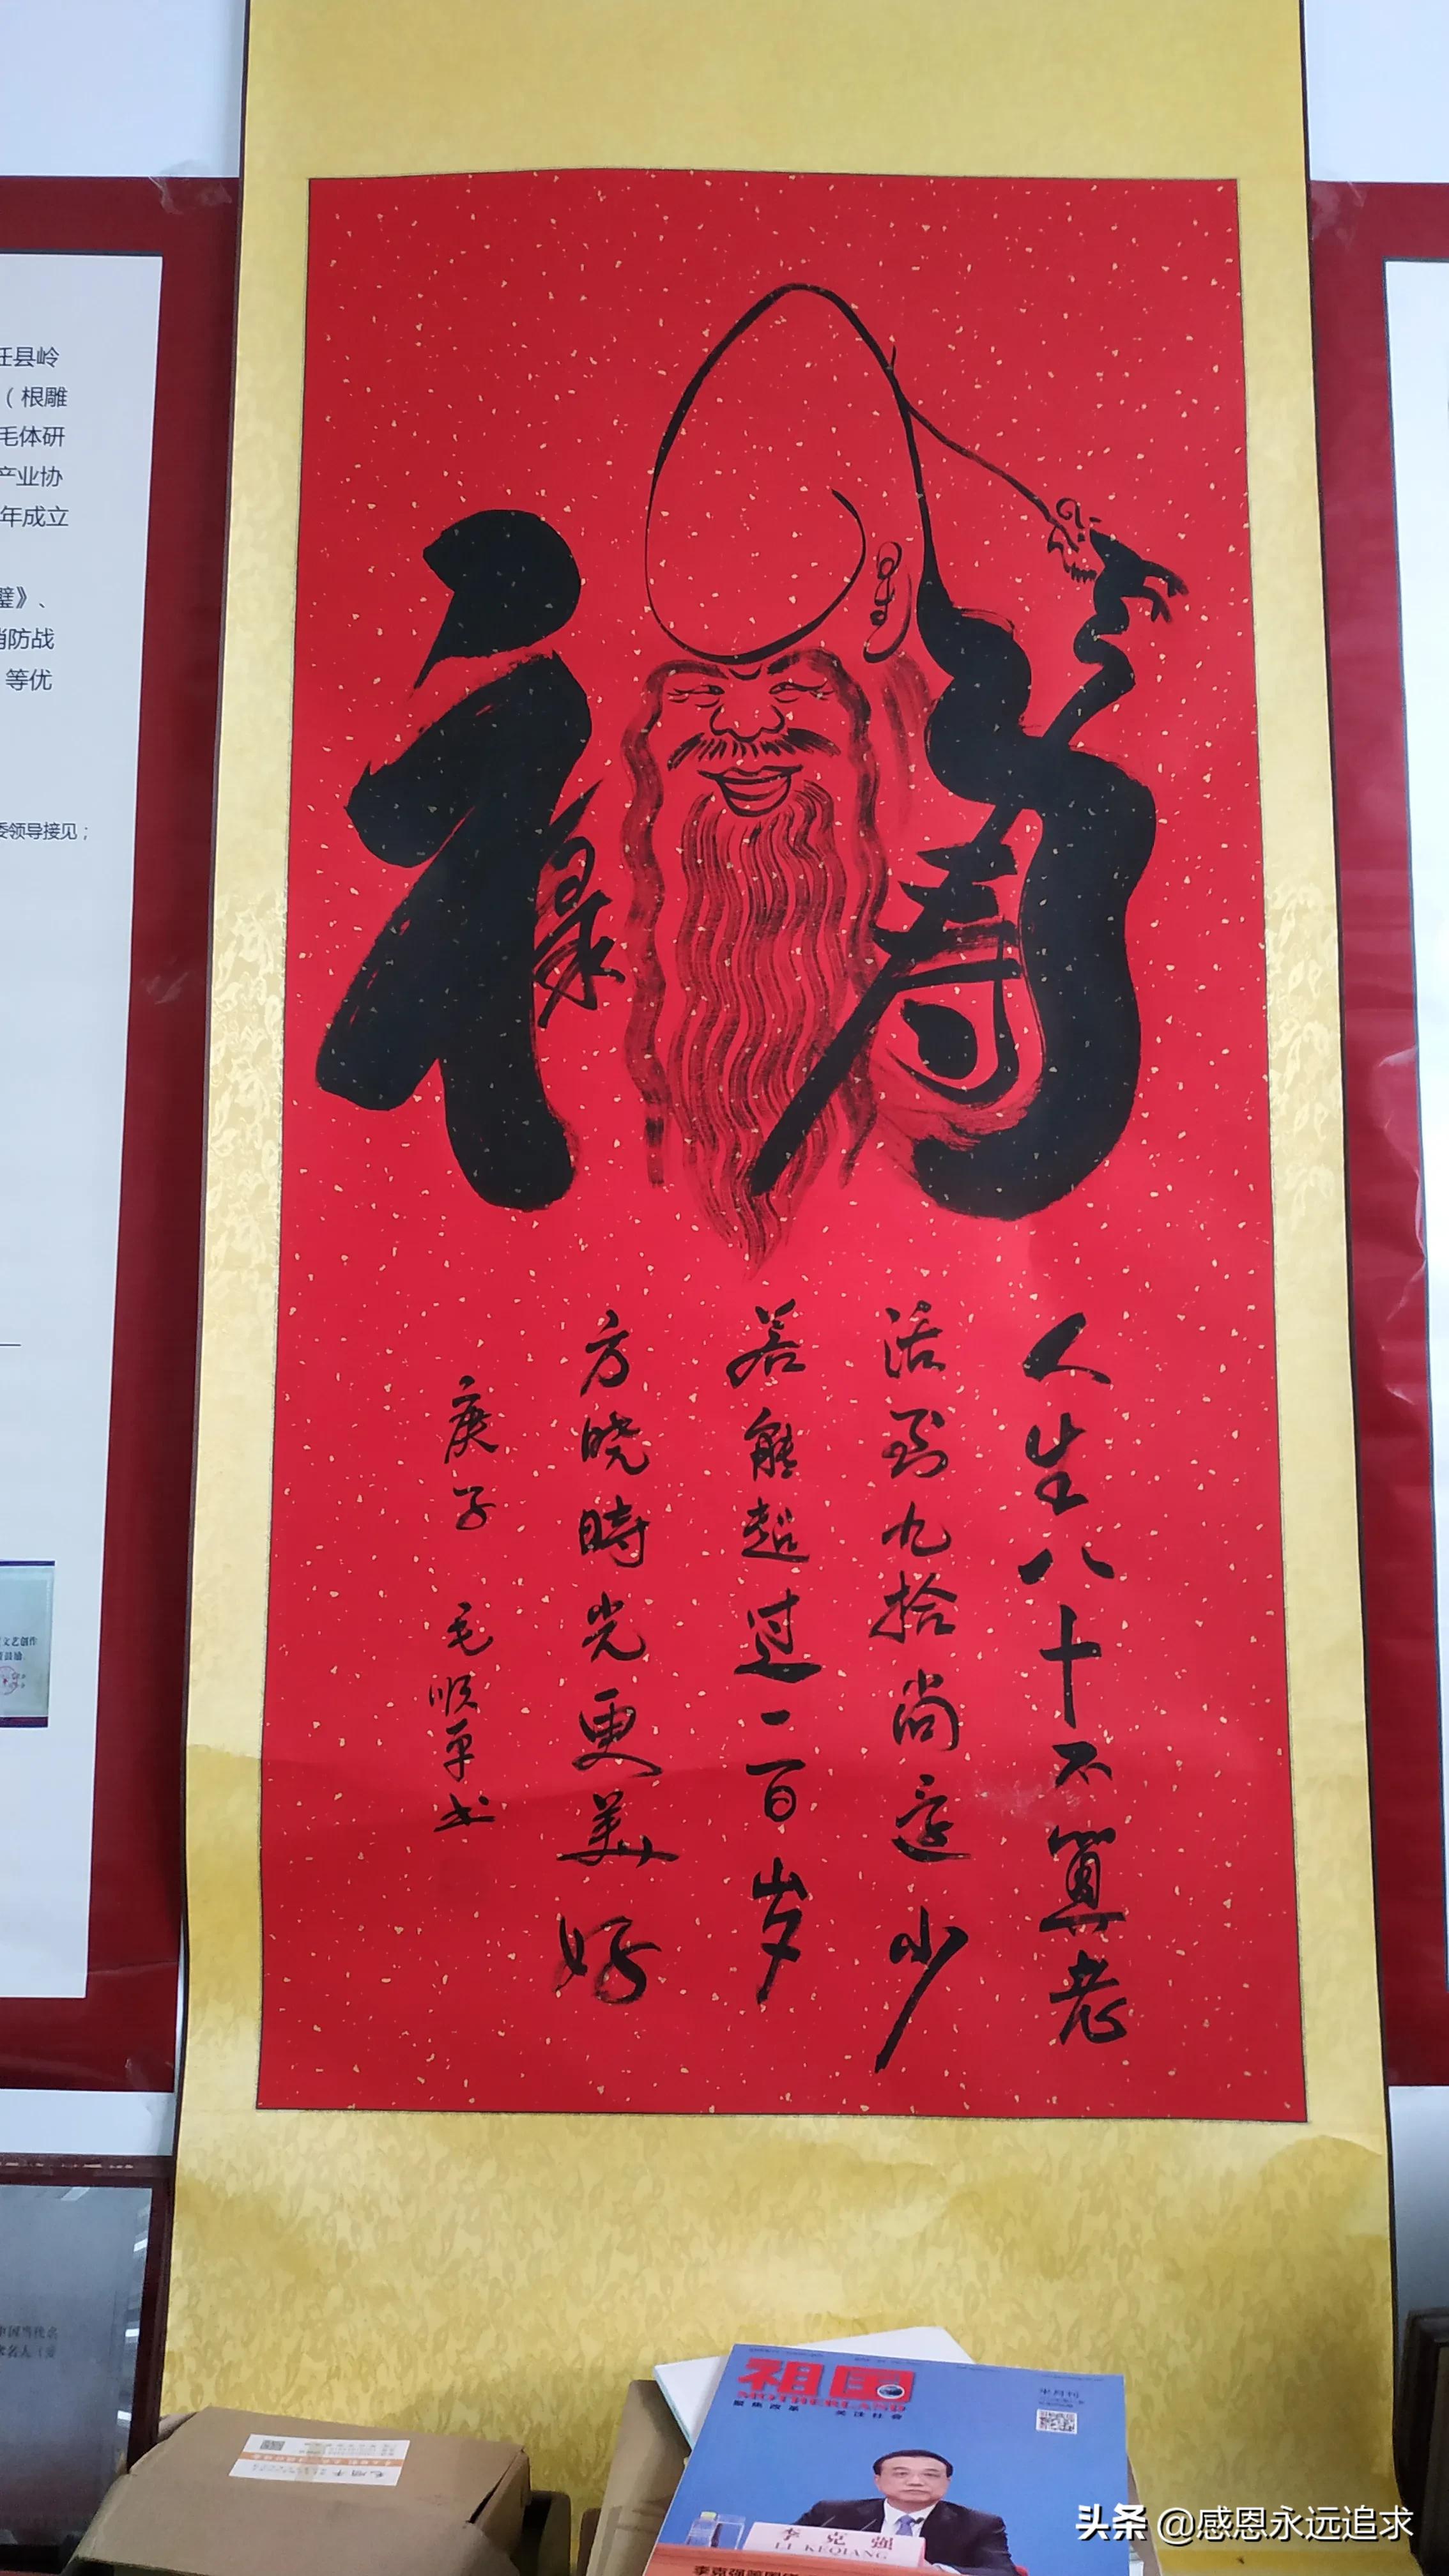 禄
寿
人生八十不算老
活到九拾尚还少
若能超过一百岁
方晓時光更美好
庚子 毛顺平书
任县岭
（根雕
毛体研
产业协
年成立
璧》、
消防战
等优
委领导接见；
文艺创作
祖国
MOTHERLAND
聚焦改革 关注社会
半月刊
李克强
LI KEQIANG
头条 @感恩永远追求